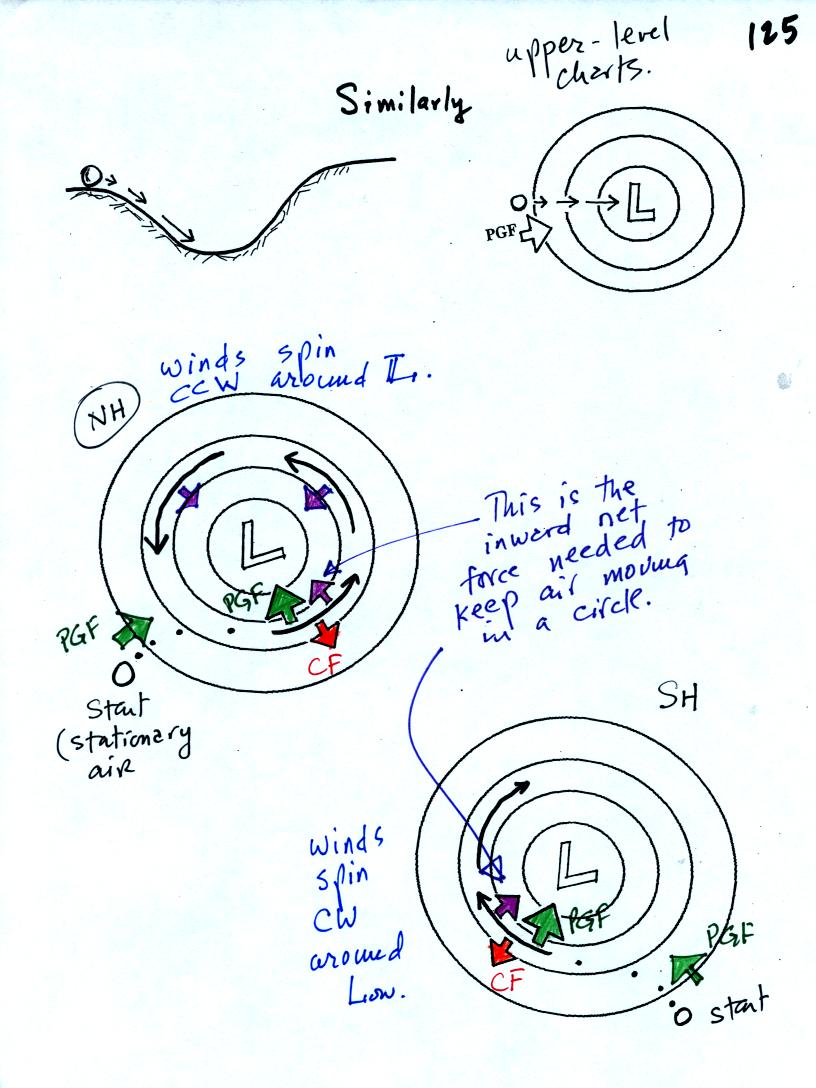 125
upper-level
charts.
Similarly
L
PGF
winds spin
CCW around L.
NH
L
PGF
PGF
CF
Start
(stationary
air
This is the
inward net
force needed to
keep air moving
in a circle.
SH
winds
spin
CW
around
Low.
L
PGF
CF
PGF
start